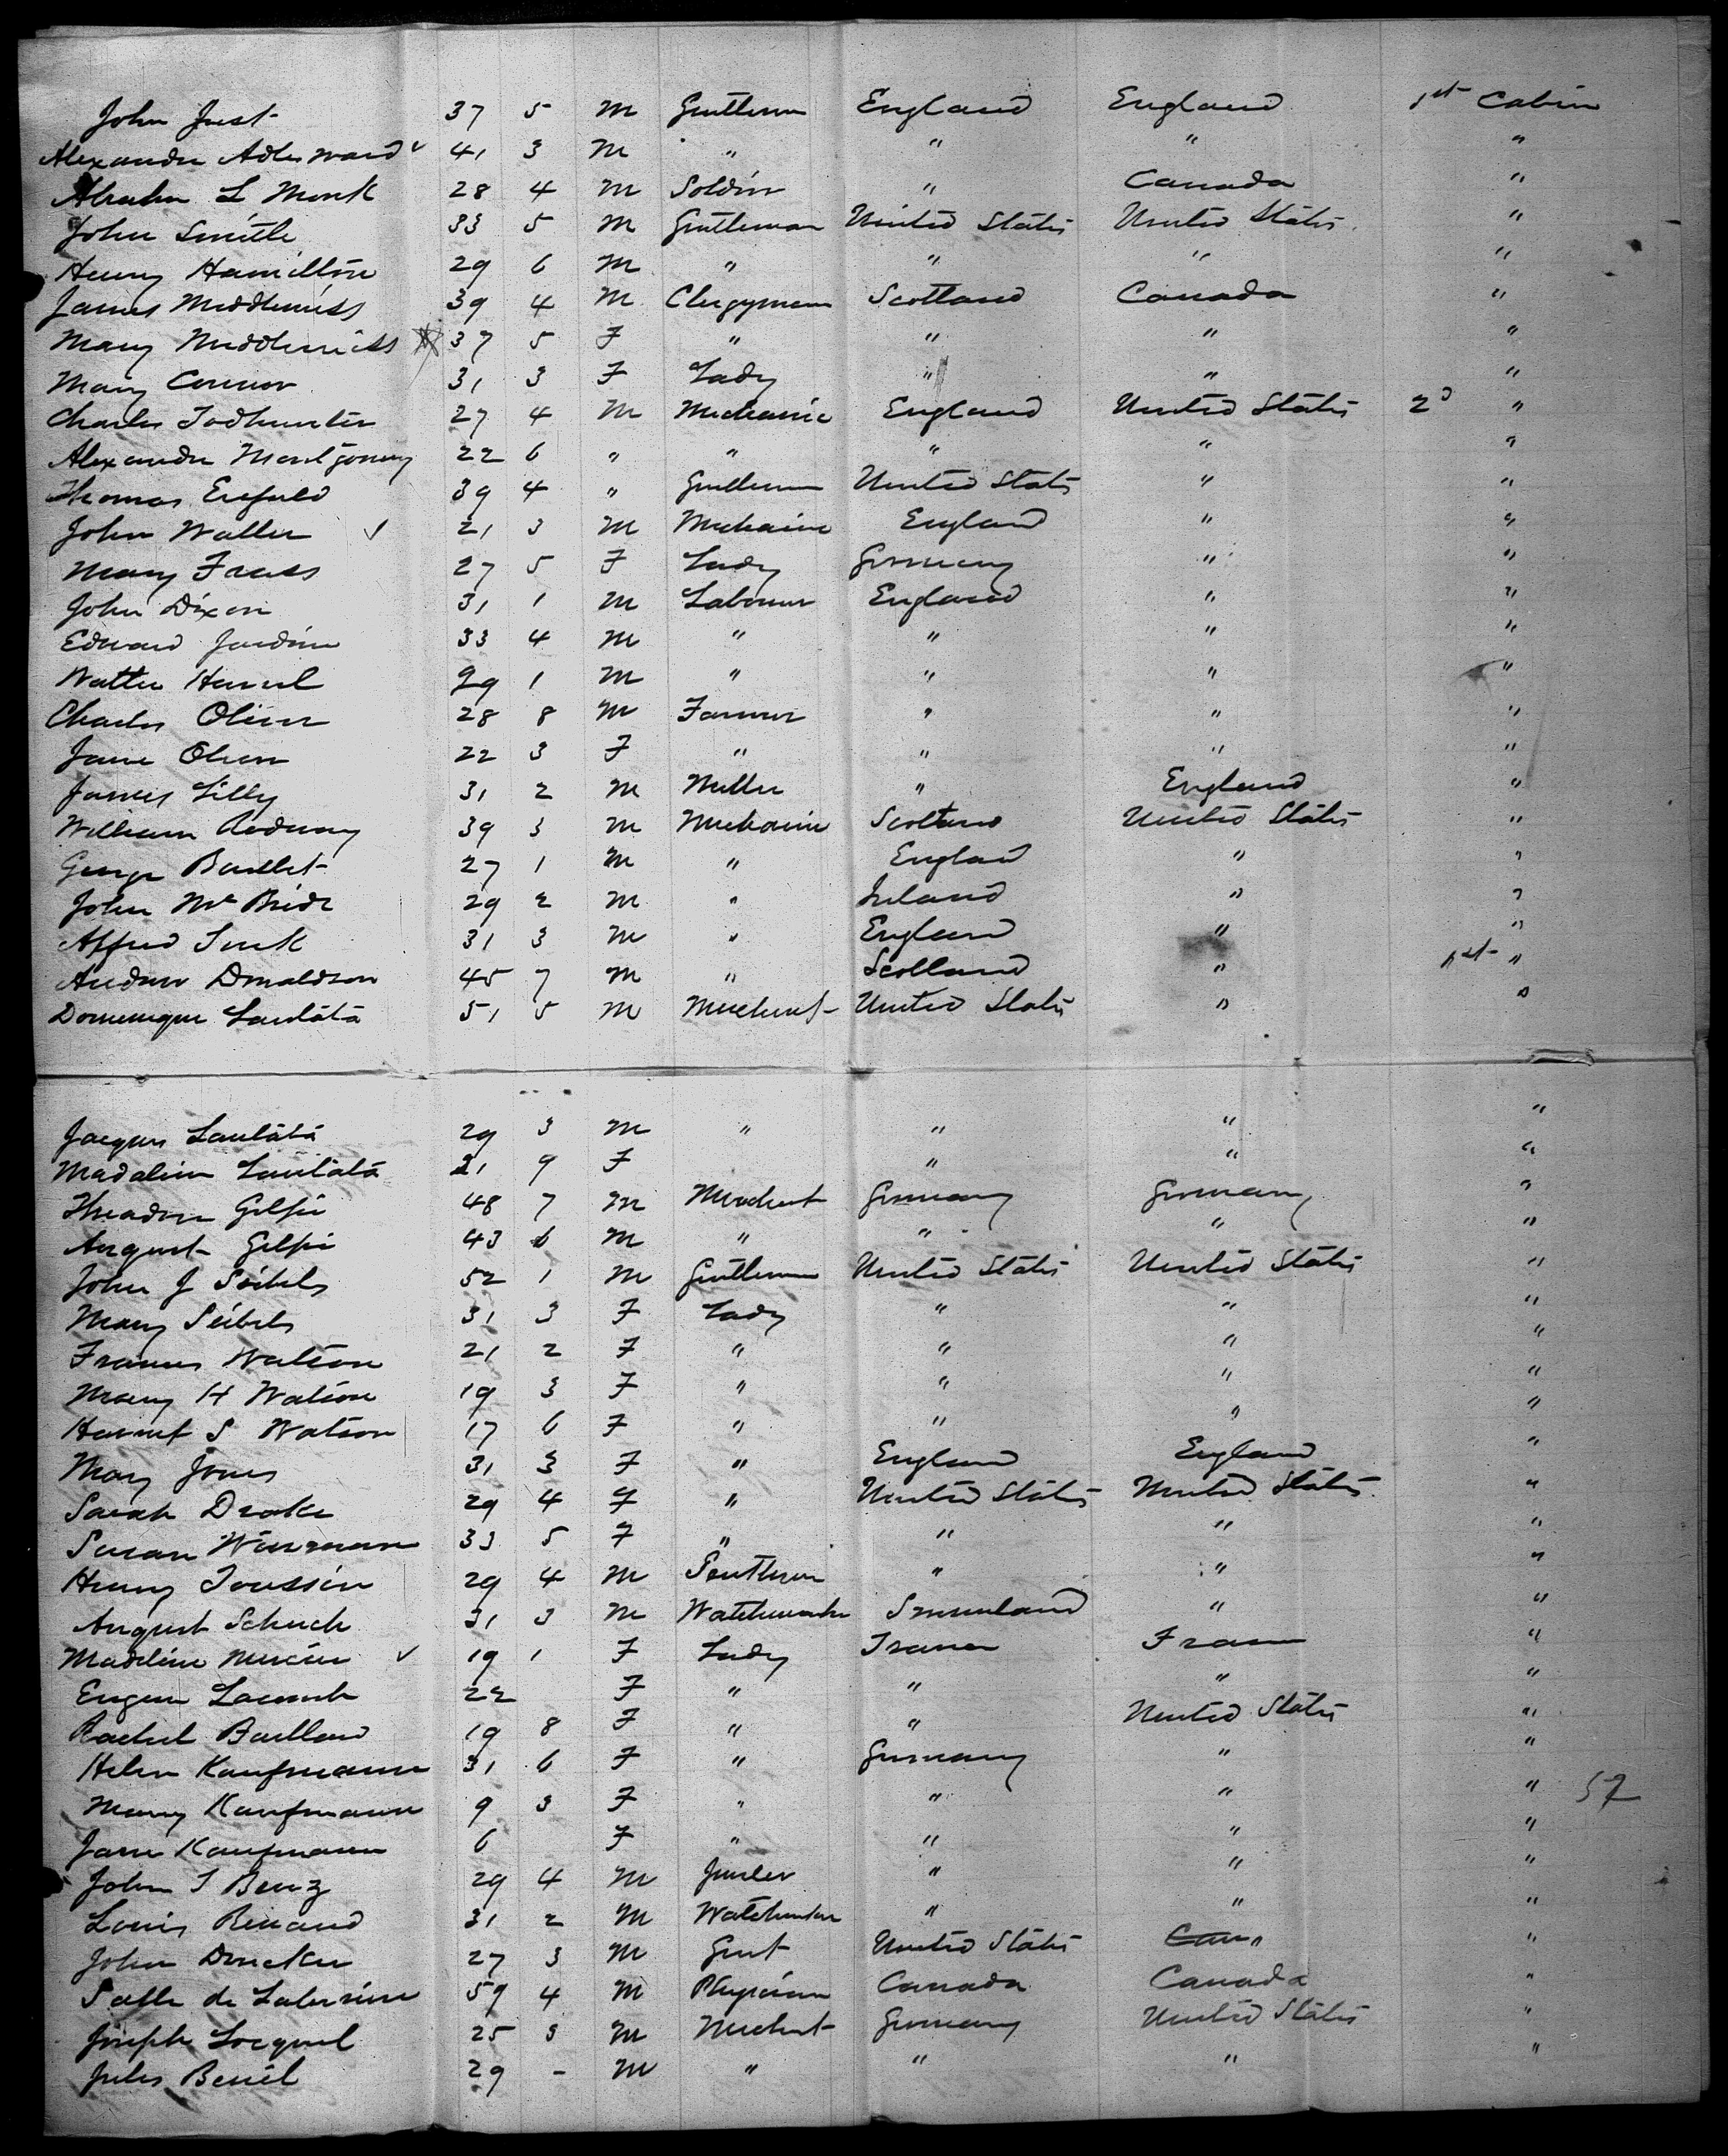 John Just 37 5 M Gentleman England England 1st Cabin
Alexander Adlesward 41 3 M " " " "
Abraham L Monk 28 4 M Soldier " Canada "
John Smith 33 5 M Gentleman United States United States "
Henry Hamilton 29 6 M " " " "
James Middlemiss 39 4 M Clergyman Scotland Canada "
Mary Middlemiss 37 5 F " " " "
Mary Connor 31 3 F Lady " " "
Charles Todhunter 27 4 M Mechanic England United States 2d "
Alexander Montgomery 22 6 " " " " "
Thomas Enfield 39 4 " Gentleman United States " "
John Waller 21 3 M Mechanic England " "
Mary 27 5 F Lady Germany " "
John Dixon 31 1 M Labourer England " "
Edward Jardine 33 4 M " " " "
Walter 29 1 M " " " "
Charles Oliver 28 8 M Farmer " " "
Jane Oliver 22 3 F " " " "
James Lilly 31 2 M Miller " England "
William Rodway 39 3 M Mechanic Scotland United States "
George Bartlet 27 1 M " England " "
John McBride 29 2 M " Ireland " "
Alfred 31 3 M " England " "
Andrew Donaldson 45 7 M " Scotland " 1st "
Domenique 51 5 M Merchant United States " "
Jacques 29 3 M " " " "
Madaline 21 9 F " " "
Theadore Gelpi 48 7 M Merchant Germany Germany "
August Gelpi 43 6 M " " " "
John J Seibels 52 1 M Gentleman United States United States "
Mary Seibels 31 3 F Lady " " "
Frances Watson 21 2 F " " " "
Mary H Watson 19 3 F " " " "
Harriet S Watson 17 6 F " " " "
Mary Jones 31 3 F " England England "
Sarah Drake 29 4 F " United States United States "
Susan 33 5 F " " " "
Henry Toussin 29 4 M Gentleman " " "
August Schuch 31 3 M Watchmaker Switzerland " "
Madeline Mercier 19 1 F Lady France France "
Eugene Lacomb 22 F " " " "
Rachel 19 8 F " " United States "
Helen Kaufmann 31 6 F " Germany " "
Mary Kaufmann 9 3 F " " " " 57
Jane Kaufmann 6 F " " " "
John T Benz 29 4 M Jeweler " " "
Louis Renaud 31 2 M Watchmaker " " "
John Drucker 27 3 M Gent United States Can " "
de 59 4 M Physician Canada Canada "
Joseph Locquel 25 3 M Merchant Germany United States "
Jules 29 - M " " " "